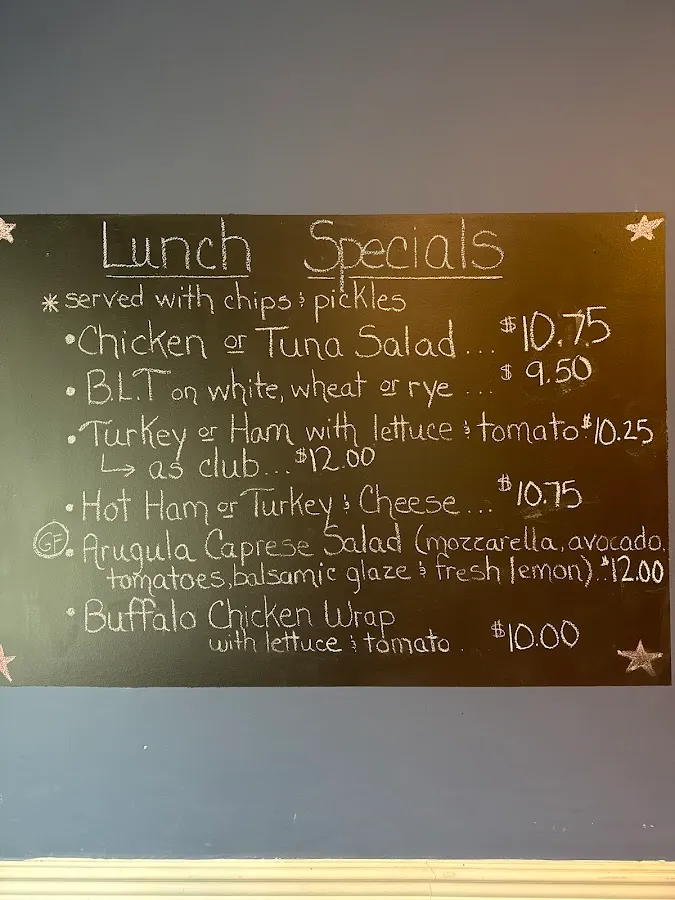 Lunch Specials
* served with chips & pickles
• Chicken or Tuna Salad... $10.75
• B.L.T on white, wheat or rye ... $9.50
• Turkey or Ham with lettuce & tomato.$10.25
↳ as club... $12.00
• Hot Ham or Turkey & Cheese... $10.75
GF • Arugula Caprese Salad (mozzarella, avocado,
tomatoes, balsamic glaze & fresh lemon)..$12.00
• Buffalo Chicken Wrap
with lettuce & tomato... $10.00